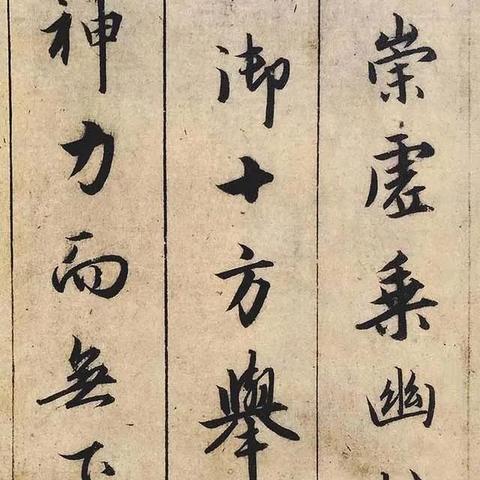 崇虚乗幽
御十方舉
神力而無下